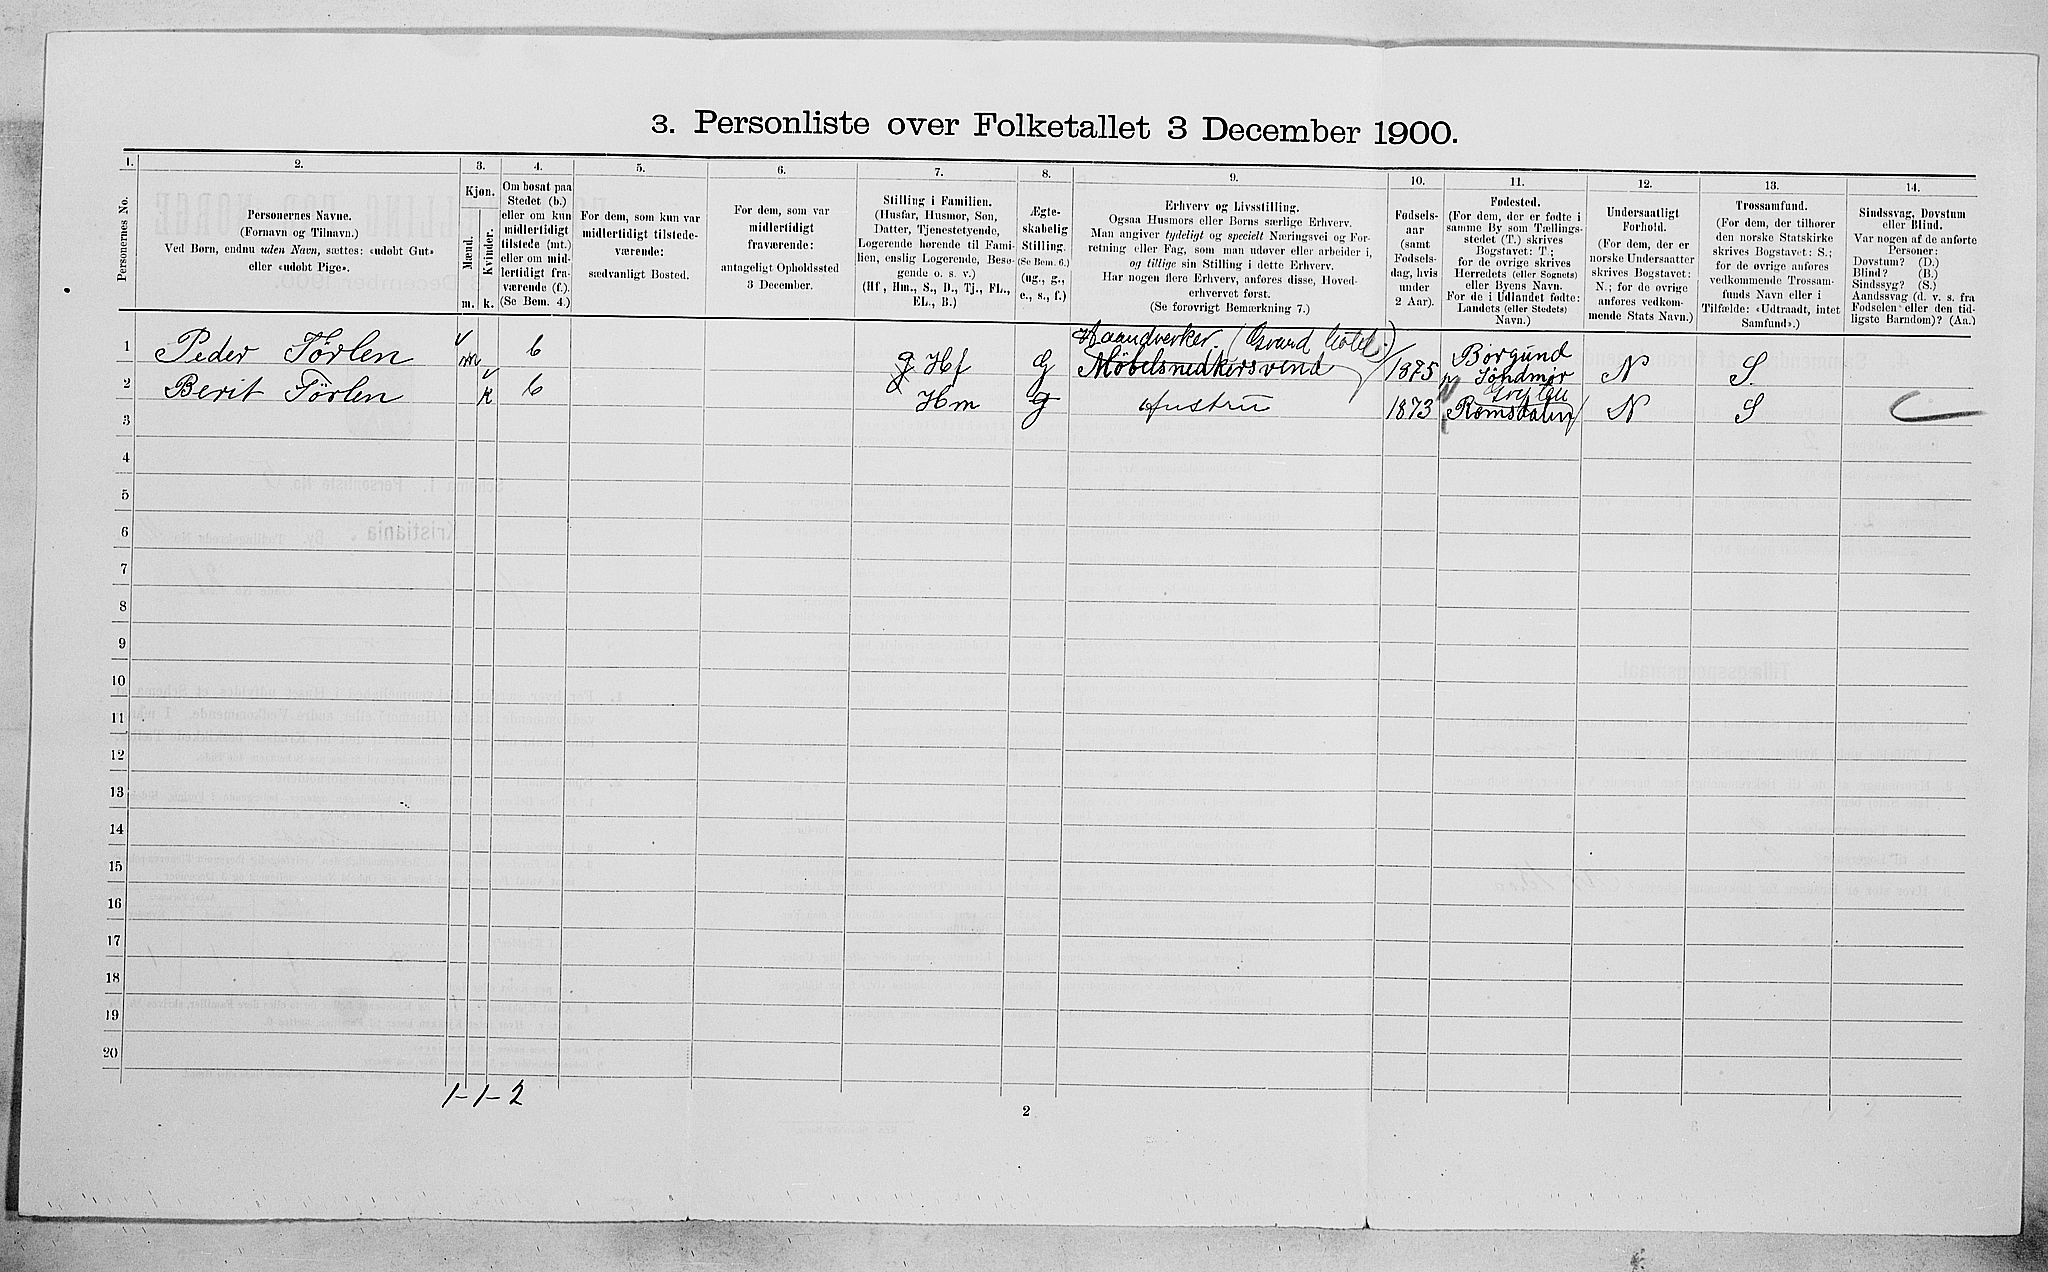 3. Personliste over Folketallet 3 December 1900.
1. 2. 3. 4. 5. 6. 7. 8. 9. 10. 11. 12. 13. 14.
Personernes No.
Personernes Navne.
(Fornavn og Tilnavn.)
Ved Børn, endnu uden Navn, sættes: «udøbt Gut»
eller «udøbt Pige».
Kjøn.
Mænd.
Kvinder.
m. k.
Om bosat paa
Stedet (b.)
eller om kun
midlertidigt
tilstede (mt.)
eller om mid-
lertidigt fra-
værende (f.).
(Se Bem. 4.)
For dem, som kun var
midlertidigt tilstede-
værende:
sædvanligt Bosted.
For dem, som var
midlertidigt
fraværende:
antageligt Opholdssted
3 December.
Stilling i Familien.
(Husfar, Husmor, Søn,
Datter, Tjenestetyende,
Logerende hørende til Fami-
lien, enslig Logerende, Besø-
gende o. s. v.)
(Hf., Hm., S., D., Tj., FL.,
EL., B.)
Ægte-
skabelig
Stilling.
(Se Bem. 6.)
(ug., g.,
e., s., f.)
Erhverv og Livsstilling.
Ogsaa Husmors eller Børns særlige Erhverv.
Man angiver tydeligt og specielt Næringsvei og For-
retning eller Fag, som man udøver eller arbeider i,
og tillige sin Stilling i dette Erhverv.
Har nogen flere Erhverv, anføres disse, Hoved-
erhvervet først.
(Se forøvrigt Bemærkning 7.)
Fødsels-
aar
(samt
Fødsels-
dag, hvis
under
2 Aar).
Fødested.
(For dem, der er fødte i
samme By som Tællings-
stedet (T.) skrives
Bogstavet: T.;
for de øvrige skrives
Herredets (eller Sognets)
eller Byens Navn.
For de i Udlandet fødte:
Landets (eller Stedets)
Navn.)
Undersaatligt
Forhold.
(For dem, der er
norske Undersaatter
skrives Bogstavet:
N.; for de øvrige
anføres vedkom-
mende Stats Navn.)
Trossamfund.
(For dem, der tilhører
den norske Statskirke
skrives Bogstavet: S.;
for de øvrige anføres
vedkommende Trossam-
funds Navn eller i
Tilfælde: «Udtraadt, intet
Samfund».)
Sindssvag, Døvstum
eller Blind.
Var nogen af de anførte
Personer:
Døvstum? (D.)
Blind? (B.)
Sindssyg? (S.)
Aandssvag (d. v. s. fra
Fødselen eller den tid-
ligste Barndom)? (Aa.)
Haandverker.
1 Peder Tørlen m b g Hf G Møbelsnedkersvend 1875 Borgund
Søndmør N S.
2 Berit Tørlen k b Hm g Hustru 1873 Romsdalen N S
3
4
5
6
7
8
9
10
11
12
13
14
15
16
17
18
19
20
1 - 1 - 2
2